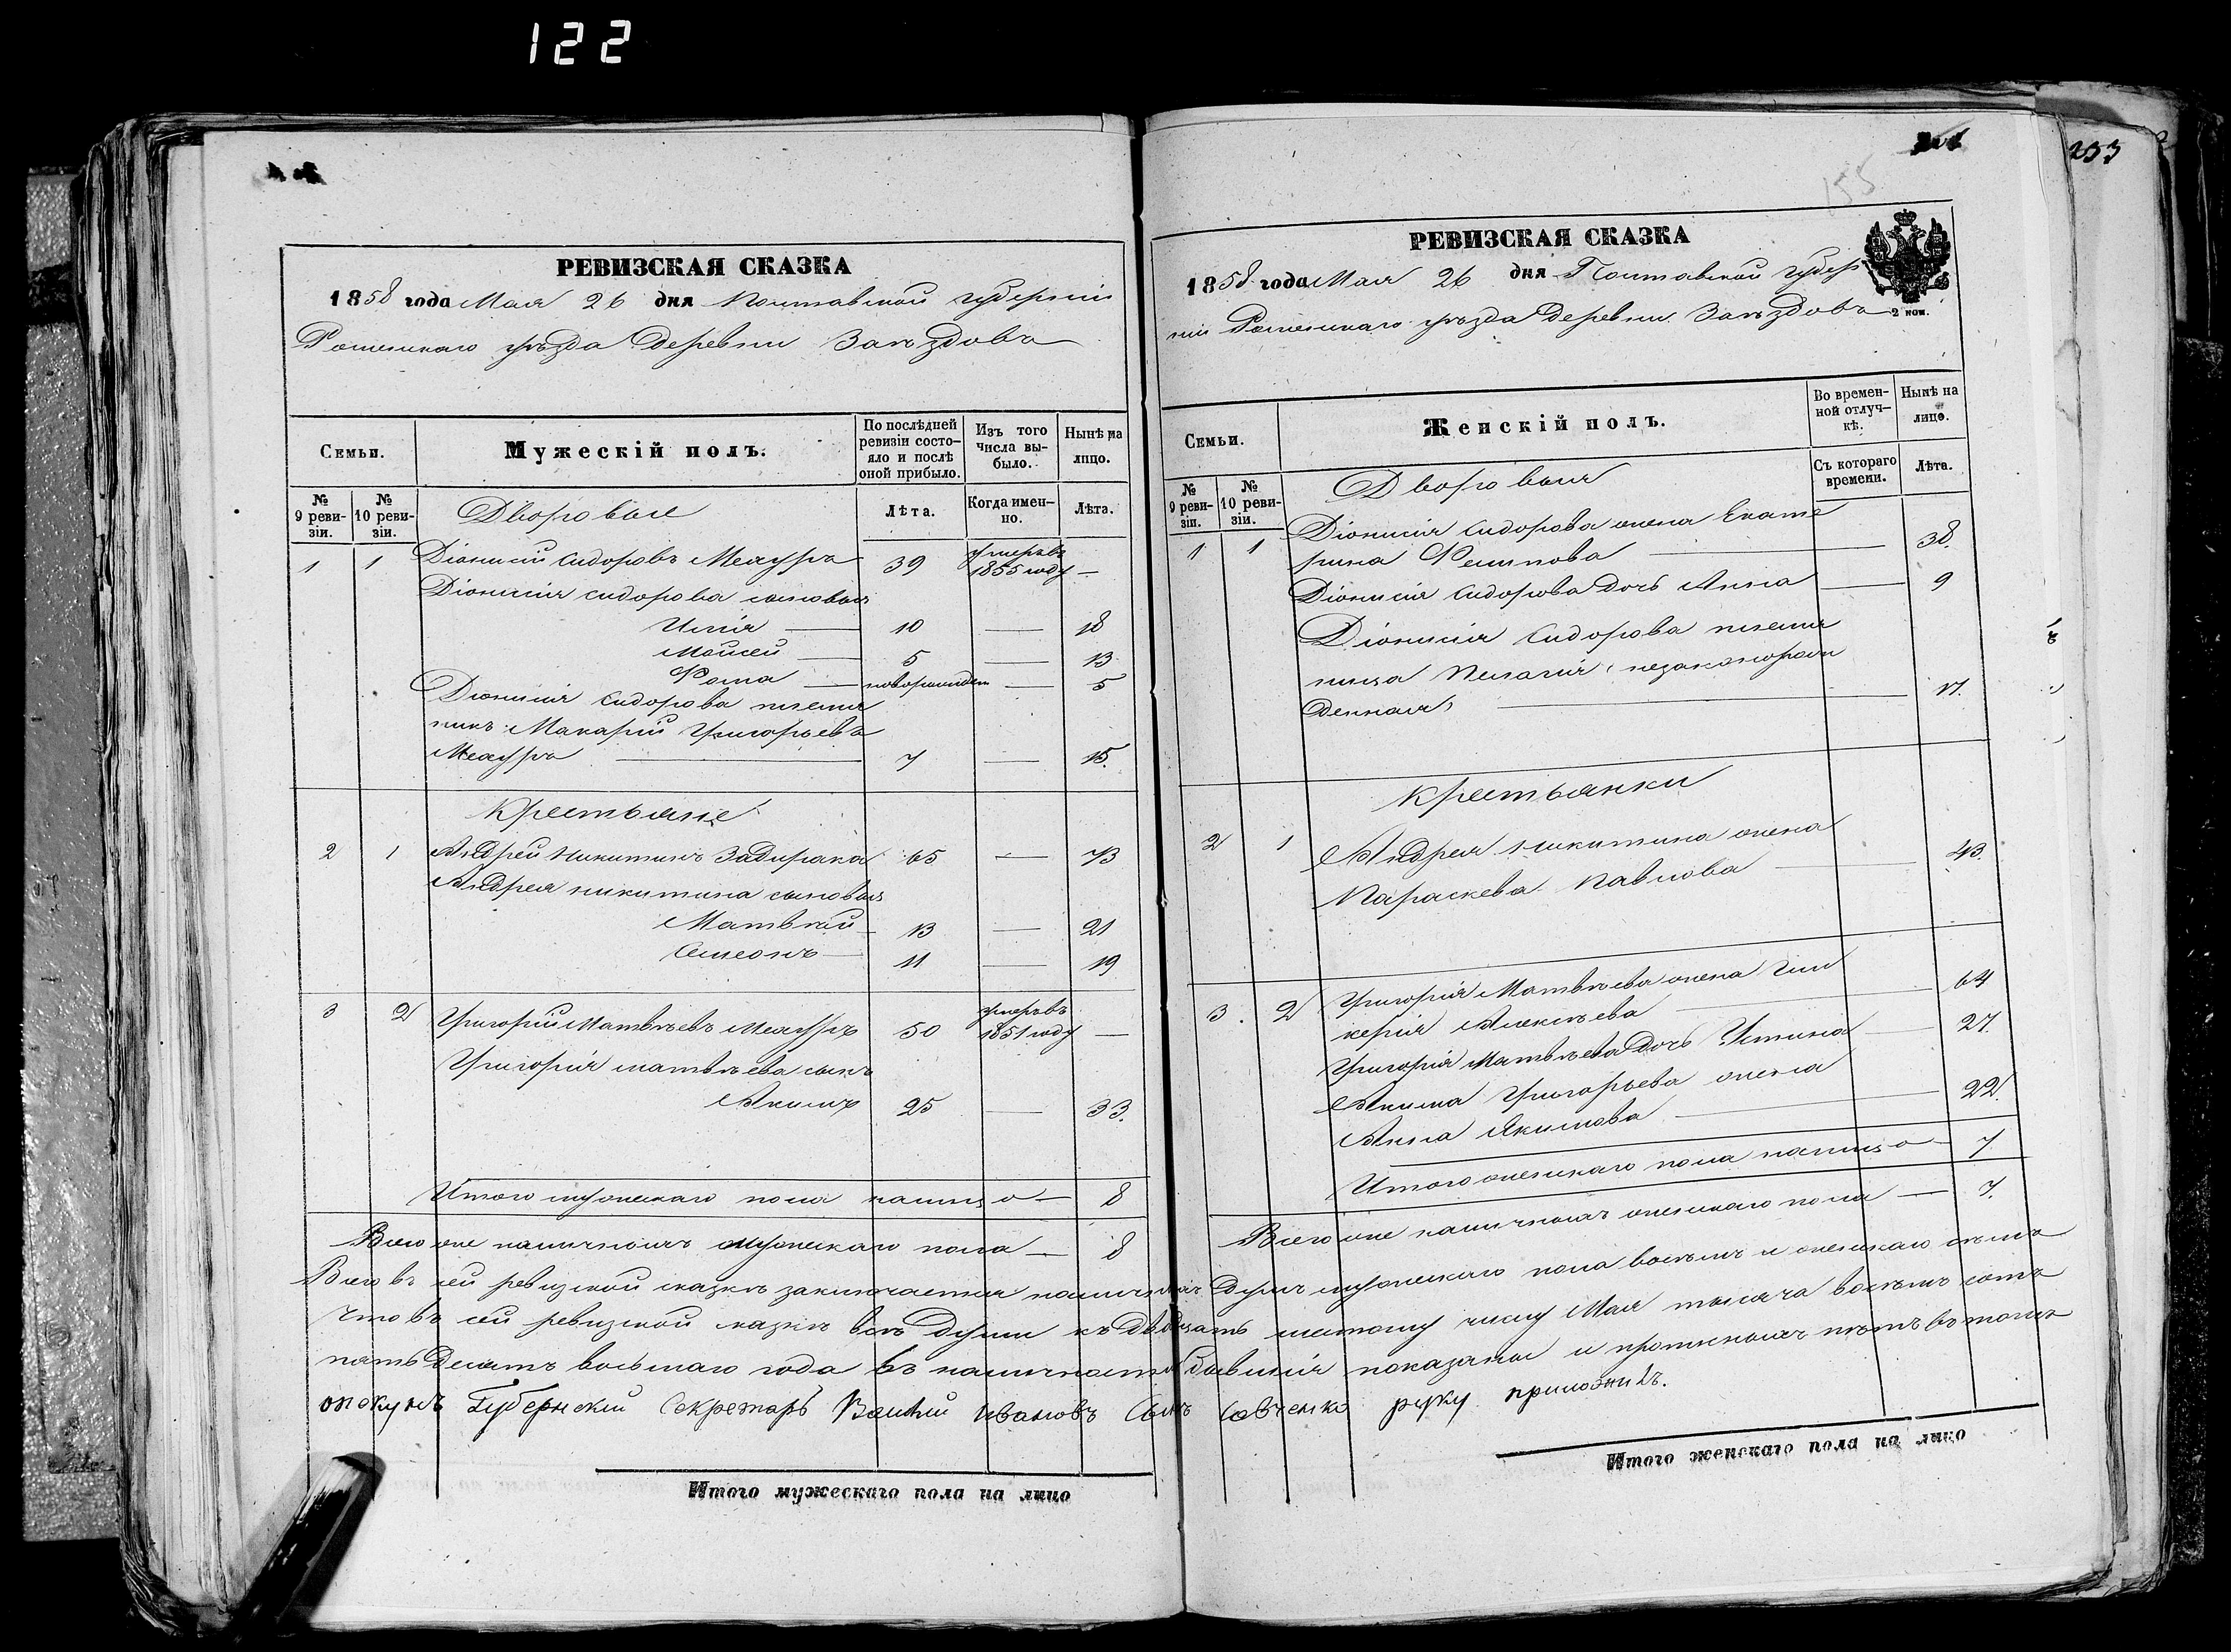 122
РЕВИЗСКАЯ СКАЗКА
1858 года Мая 26 дня Полтавской губерніи
Роменскаго уѣзда Деревни Заѣздовъ
Семьи.
Мужескій полъ.
По послѣдней ревизіи состояло и послѣ оной прибыло.
Изъ того числа выбыло.
Нынѣ на лицо.
№ 9 ревизіи.
№ 10 ревизіи.
Дворовые
Лѣта.
Когда именно.
Лѣта.
1 1 Діонисій Сидоровъ Мехуръ 39 умеръ въ 1855 году —
Діонисія Сидорова сыновья
Илія — 10 — 18
Мойсей — 5 — 13
Фома — новорожден — 5
Діонисія Сидорова племян
никъ Макарій Григорьевъ
Мехуръ — 7 — 15.
Крестьяне
2 1 Андрей Никитинъ Задирака 65 — 73
Андрея Никитина сыновья
Матвѣй — 13 — 21
Симеонъ — 11 — 19
3 2 Григорій Матвѣевъ Мехуръ 50 умеръ въ 1851 году —
Григорія Матвѣева сынъ
Акимъ 25 — 33.
Итого мужескаго пола налицо — 8
Всего же наличныхъ мужескаго пола — 8
155
233
РЕВИЗСКАЯ СКАЗКА
1858 года Мая 26 дня Полтавской губер
ніи Роменскаго уѣзда Деревни Заѣздовъ
2 коп.
Семьи.
Женскій полъ.
Во временной отлучкѣ.
Нынѣ на лицо.
№ 9 ревизіи.
№ 10 ревизіи.
Дворовыя
Съ котораго времени.
Лѣта.
1 1 Діонисія Сидорова жена Екате
рина Филипова — 38.
Діонисія Сидорова дочь Анна — 9
Діонисія Сидорова племян
ница Пелагія, незаконорож
денная, — 17.
Крестьянки
2 1 Андрея Никитина жена
Параскева Павлова — 43.
3. 2 Григорія Матвѣева жена Гли
керія Алексѣева — 64
Григорія Матвѣева дочь Устина — 27.
Акима Григорьева жена
Анна Якимова — 22.
Итого женскаго пола налицо — 7
Всего же наличныхъ женскаго пола — 7.
Всего въ сей ревизской сказкѣ заключается наличныхъ Душъ мужескаго пола восемь и женскаго семь
что въ сей ревизской сказкѣ всѣ Души къ двадцать шестому числу Мая тысяча восемь сотъ
пятьдесятъ восьмаго года въ наличности бывшія показаны и прописныхъ нѣтъ въ томъ
опекунъ Губернскій Секретарь Василій Ивановъ Сынъ Савченко руку приложилъ.
Итого мужескаго пола на лицо
Итого женскаго пола на лицо